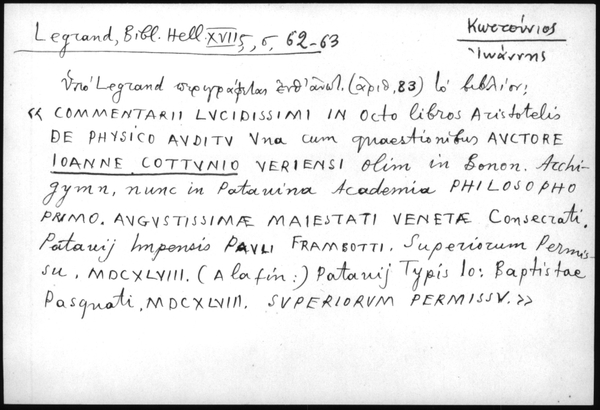 Legrand, Bibl. Hell. XVII5, σ, 62-63
Κωττούνιος
Ἰωάννης
Ὑπό Legrand περιγράφεται ἐνθ' ἀνωτ. (ἀριθ, 83) τό βιβλίον;
« COMMENTARII LVCIDISSIMI IN Octo libros Aristotelis
DE PHYSICO AVDITV Vna cum quaestionibus AVCTORE
IOANNE COTTVNIO VERIENSI olim in Bonon. Archi-
gymn, nunc in Patavina Academia PHILOSOPHO
PRIMO. AVGVSTISSIMÆ MAIESTATI VENETÆ Consecrati.
Patavij Impensis PAVLI FRAMBOTTI. Superiorum Permis-
su. MDCXLVIII. (A la fin:) Patavij Typis Io: Baptistae
Pasquati, MDCXLVIII. SUPERIORVM PERMISSV. »